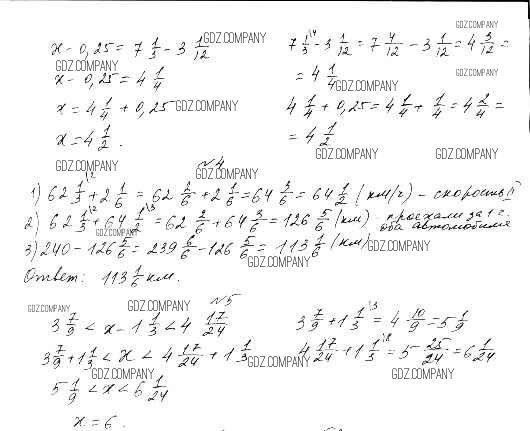 x - 0,25 = 7 1/3 - 3 1/12 GDZ.COMPANY
7 1/3^4 - 3 1/12 = 7 4/12 - 3 1/12 = 4 3/12 = GDZ.COMPANY
GDZ.COMPANY
x - 0,25 = 4 1/4
= 4 1/4 GDZ.COMPANY
GDZ.COMPANY
x = 4 1/4 + 0,25 GDZ.COMPANY
4 1/4 + 0,25 = 4 1/4 + 1/4 = 4 2/4 =
x = 4 1/2.
= 4 1/2
GDZ.COMPANY GDZ.COMPANY
GDZ.COMPANY
№4
GDZ.COMPANY
1) 62 1/3^2 + 2 1/6 = 62 2/6 + 2 1/6 = 64 3/6 = 64 1/2 (км/ч) - скорость II
2) 62 1/3^2 + 64 1/2^3 = 62 2/6 + 64 3/6 = 126 5/6 (км) - проехали за 1 ч.
оба автомобиля
GDZ.COMPANY
3) 240 - 126 5/6 = 239 6/6 - 126 5/6 = 113 1/6 (км) GDZ.COMPANY
GDZ.COMPANY
Ответ: 113 1/6 км.
№5
GDZ.COMPANY GDZ.COMPANY
3 7/9 < x - 1 1/3 < 4 17/24
3 7/9 + 1 1/3^3 = 4 10/9 = 5 1/9
3 7/9 + 1 1/3 < x < 4 17/24 + 1 1/3
GDZ.COMPANY
4 17/24 + 1 1/3^8 = 5 25/24 = 6 1/24
GDZ.COMPANY GDZ.COMPANY
5 1/9 < x < 6 1/24
x = 6.